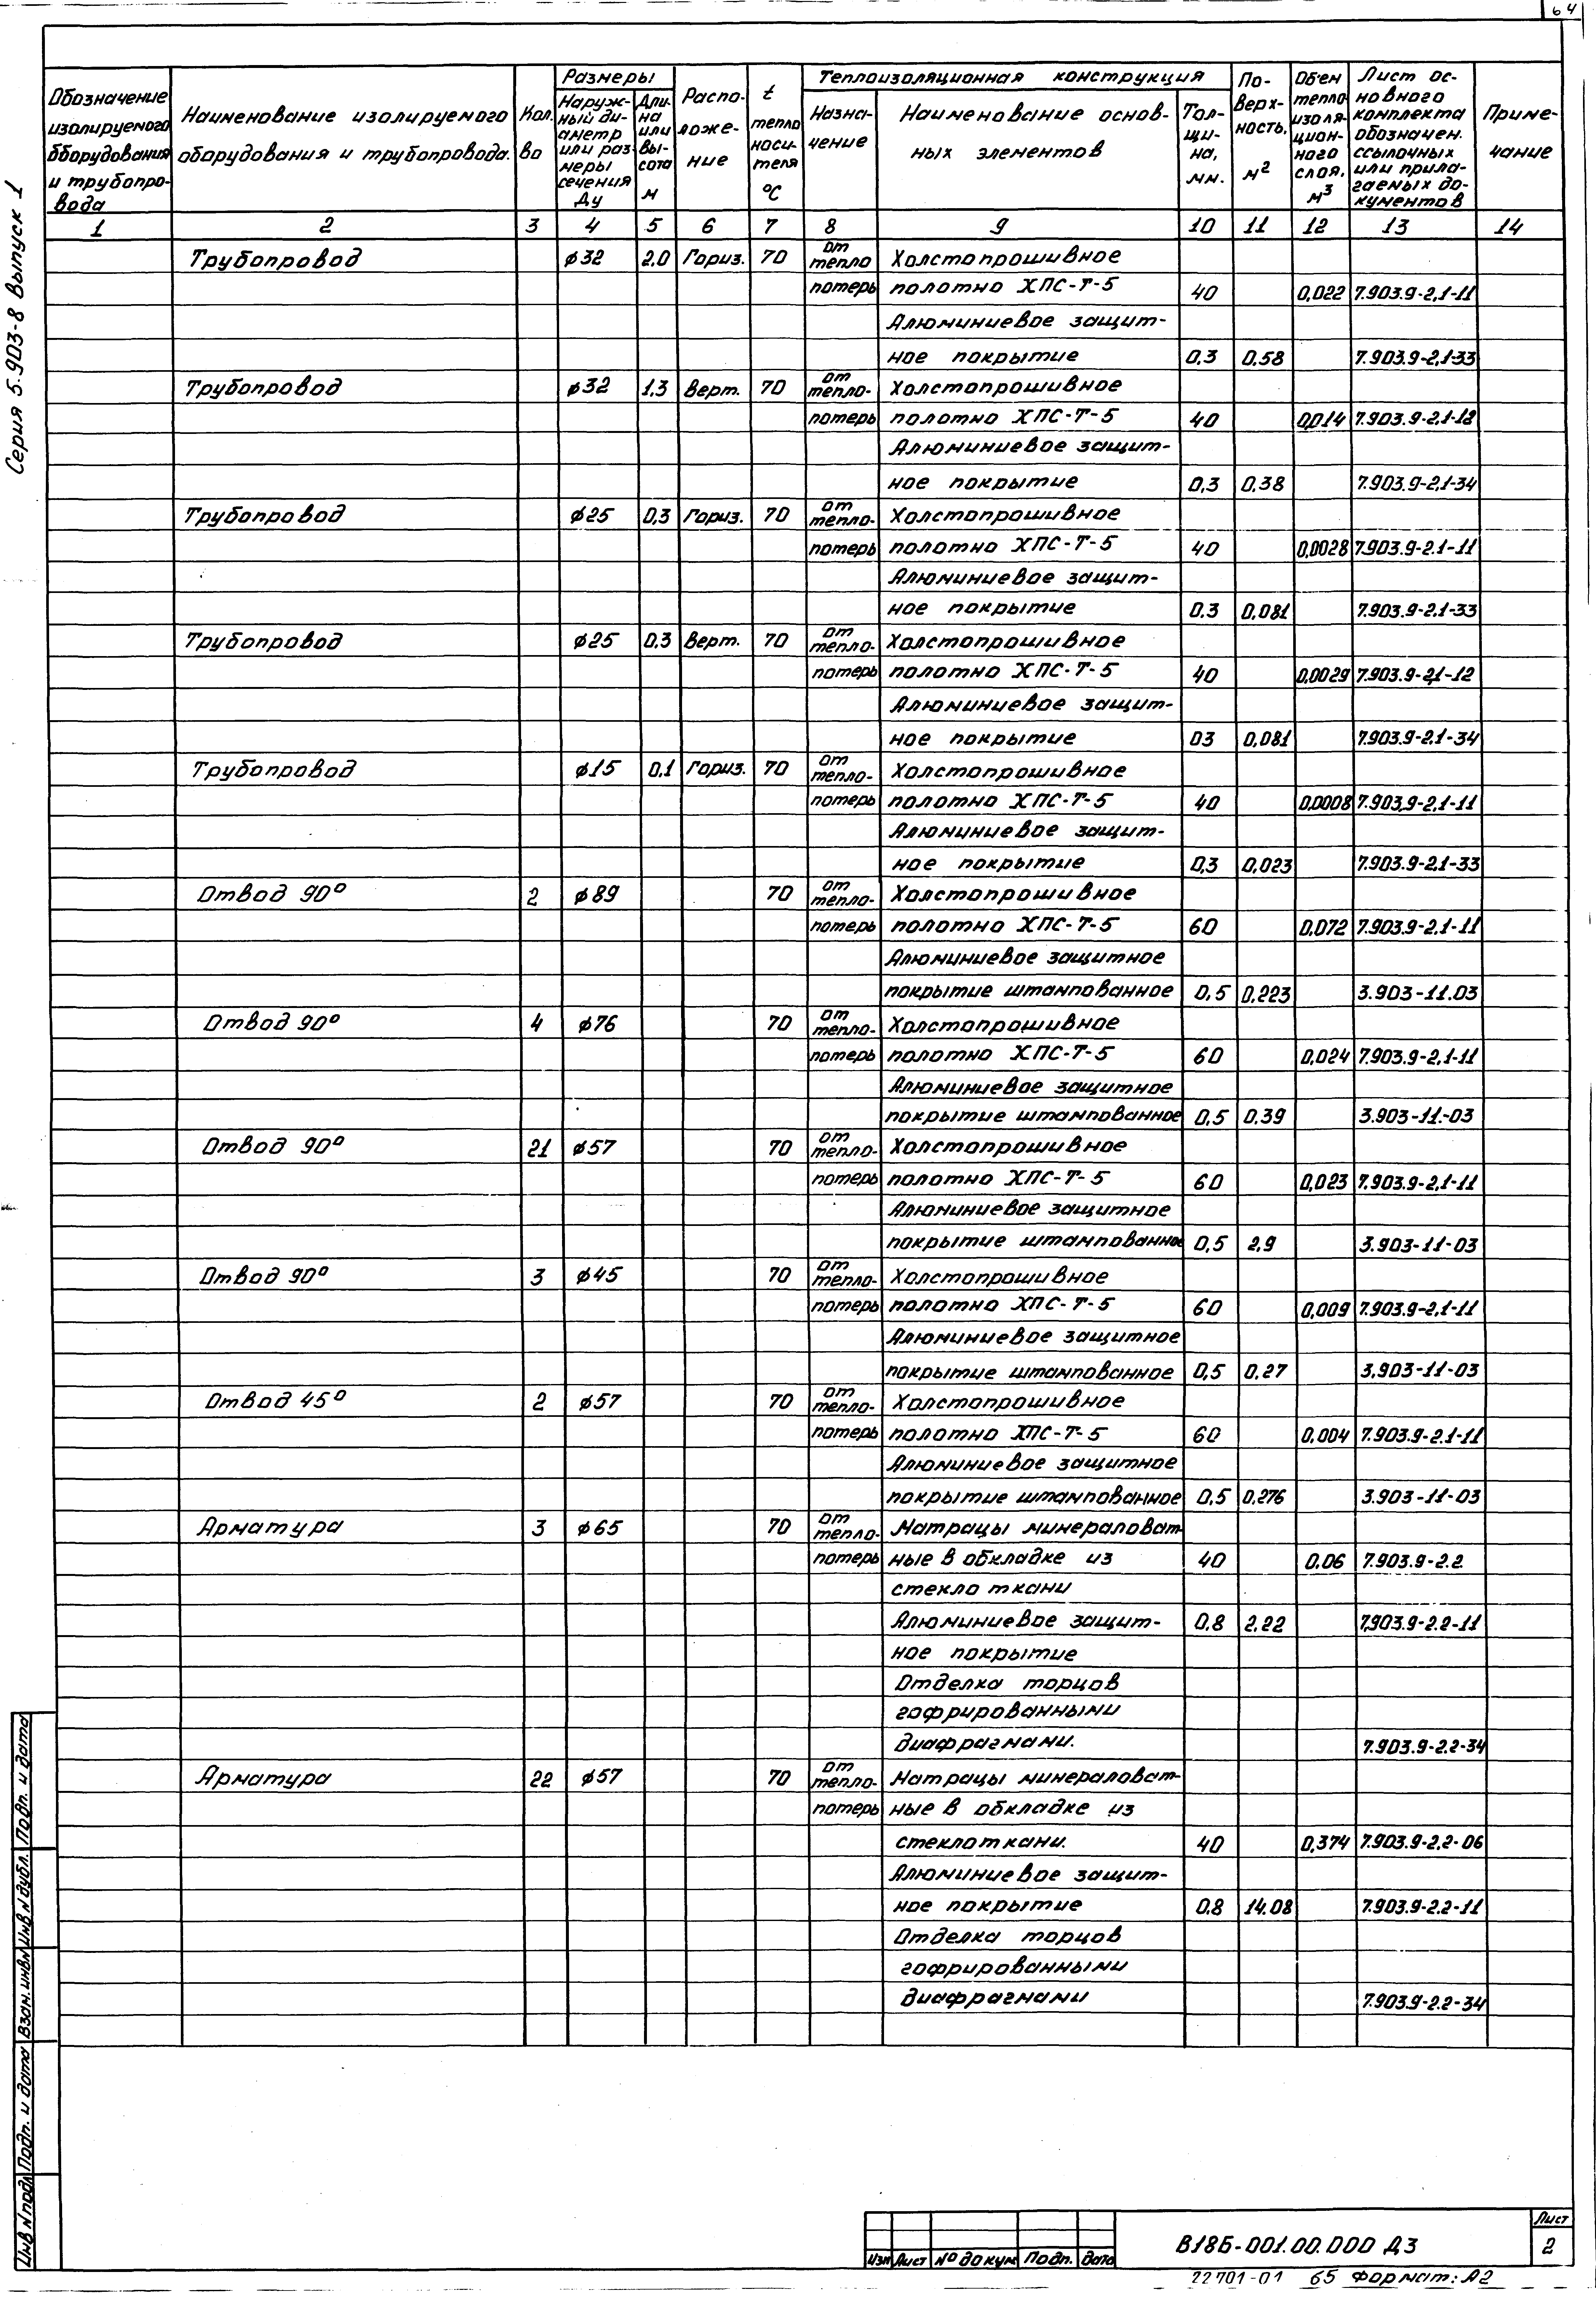 64
Серия 5.903-8 Выпуск 1
Обозначение изолируемого оборудования и трубопровода
Наименование изолируемого оборудования и трубопровода.
Кол. во
Размеры
Наружный диаметр или размеры сечения Ду
Длина или высота м
Расположение
t теплоносителя °С
Теплоизоляционная конструкция
Назначение
Наименование основных элементов
Толщина, мм.
Поверхность, м²
Объем теплоизоляционного слоя, м³
Лист основного комплекта обозначен. ссылочных или прилагаемых документов
Примечание
1 2 3 4 5 6 7 8 9 10 11 12 13 14
Трубопровод ø32 2.0 Гориз. 70 от тепло Холстопрошивное
потерь полотно ХПС-Т-5 40 0,022 7.903.9-2,1-11
Алюминиевое защит-
ное покрытие 0.3 0.58 7.903.9-2,1-33
Трубопровод ø32 1.3 Верт. 70 от тепло- Холстопрошивное
потерь полотно ХПС-Т-5 40 0,014 7.903.9-2,1-12
Алюминиевое защит-
ное покрытие 0,3 0.38 7.903.9-2,1-34
Трубопровод ø25 0,3 Гориз. 70 от тепло- Холстопрошивное
потерь полотно ХПС-Т-5 40 0,0028 7.903.9-2.1-11
Алюминиевое защит-
ное покрытие 0.3 0,081 7.903.9-2.1-33
Трубопровод ø25 0.3 Верт. 70 от тепло- Холстопрошивное
потерь полотно ХПС-Т-5 40 0,0029 7.903.9-2,1-12
Алюминиевое защит-
ное покрытие 03 0,081 7.903.9-2,1-34
Трубопровод ø15 0,1 Гориз. 70 от тепло- Холстопрошивное
потерь полотно ХПС-Т-5 40 0,0008 7.903,9-2,1-11
Алюминиевое защит-
ное покрытие 0,3 0,023 7.903.9-2,1-33
Отвод 90° 2 ø89 70 от тепло- Холстопрошивное
потерь полотно ХПС-Т-5 60 0,072 7.903.9-2.1-11
Алюминиевое защитное
покрытие штампованное 0,5 0,223 3.903-11.03
Отвод 90° 4 ø76 70 от тепло- Холстопрошивное
потерь полотно ХПС-Т-5 60 0,024 7.903.9-2,1-11
Алюминиевое защитное
покрытие штампованное 0,5 0.39 3.903-11-03
Отвод 90° 21 ø57 70 от тепло- Холстопрошивное
потерь полотно ХПС-Т-5 60 0,023 7.903.9-2,1-11
Алюминиевое защитное
покрытие штампованное 0,5 2,9 3.903-11-03
Отвод 90° 3 ø45 70 от тепло- Холстопрошивное
потерь полотно ХПС-Т-5 60 0,009 7.903.9-2,1-11
Алюминиевое защитное
покрытие штампованное 0,5 0,27 3.903-11-03
Отвод 45° 2 ø57 70 от тепло- Холстопрошивное
потерь полотно ХПС-Т-5 60 0.004 7.903.9-2.1-11
Алюминиевое защитное
покрытие штампованное 0,5 0,276 3.903-11-03
Арматура 3 ø65 70 от тепло- Матрацы минераловат-
потерь ные в обкладке из 40 0,06 7.903.9-2.2
стеклоткани
Алюминиевое защит- 0,8 2,22 7.903.9-2.2-11
ное покрытие
Отделка торцов
гофрированными
диафрагмами. 7.903.9-2.2-34
Арматура 22 ø57 70 от тепло- Матрацы минераловат-
потерь ные в обкладке из
стеклоткани. 40 0,374 7.903.9-2,2-06
Алюминиевое защит-
ное покрытие 0,8 14.08 7.903.9-2.2-11
Отделка торцов
гофрированными
диафрагмами 7.903.9-2.2-34
Инв N подл Подп. и дата Взам. инв N Инв N дубл. Подп. и дата
Изм Лист № докум Подп. Дата
В18Б-001.00.000 Д3
Лист
2
22701-01 65 Формат: А2